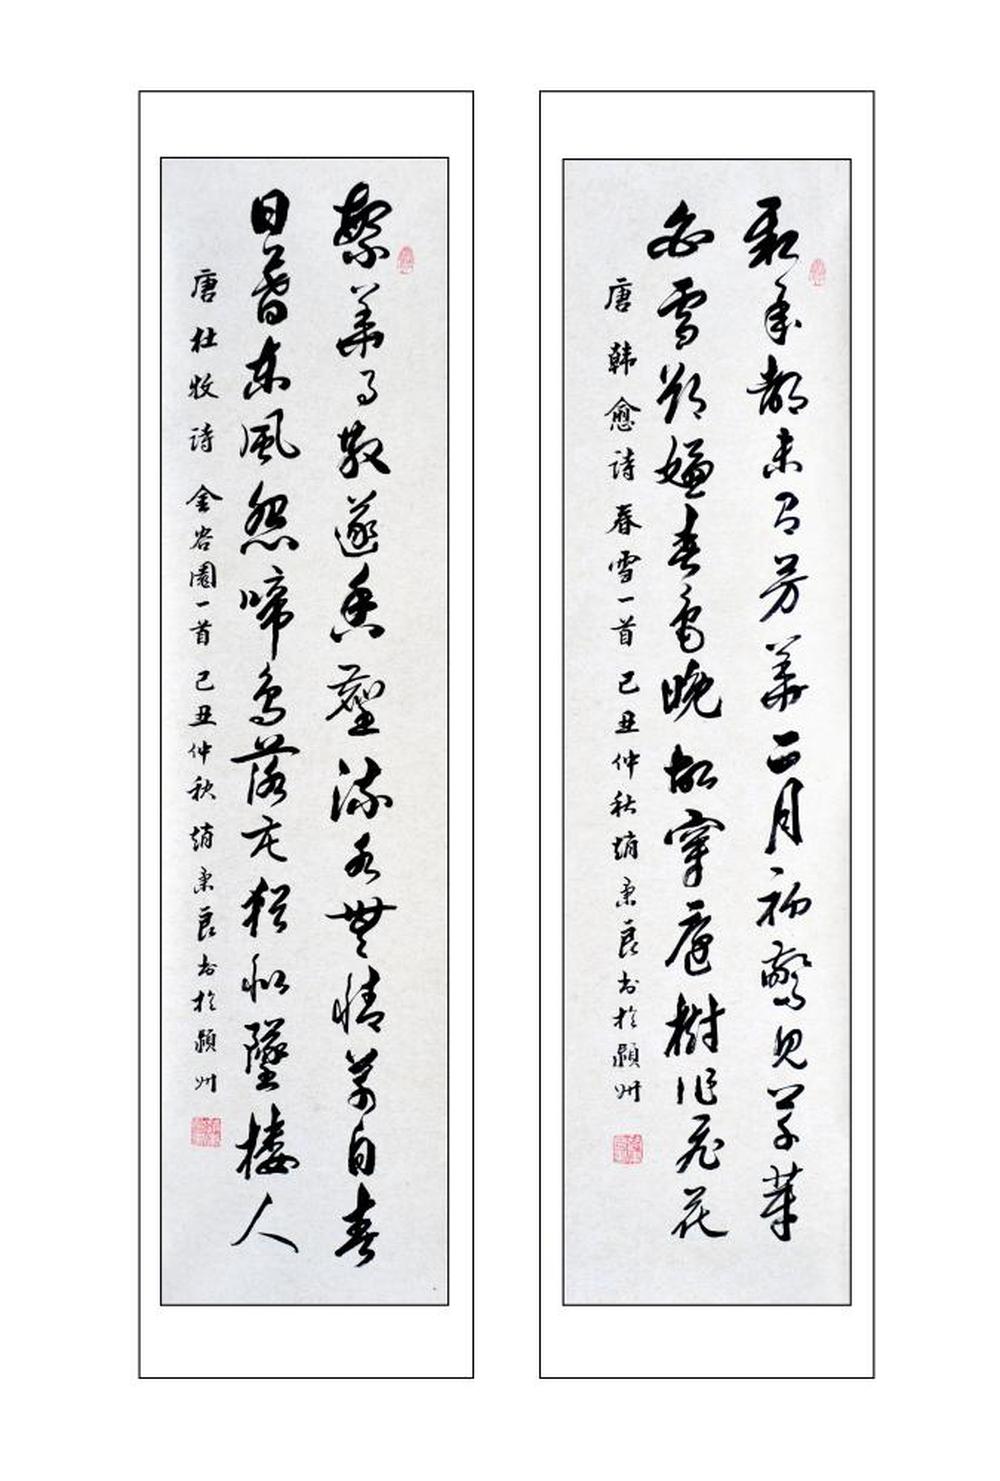 新年都未有芳華正月初驚見草芽
白雪却嫌春色晚故穿庭樹作飛花
唐韩愈诗春雪一首己丑仲秋趙秉良书於頴州
繁華事散逐香塵流水無情草自春
日暮東風怨啼鳥落花猶似墜樓人
唐杜牧诗金谷園一首己丑仲秋趙秉良书於頴州